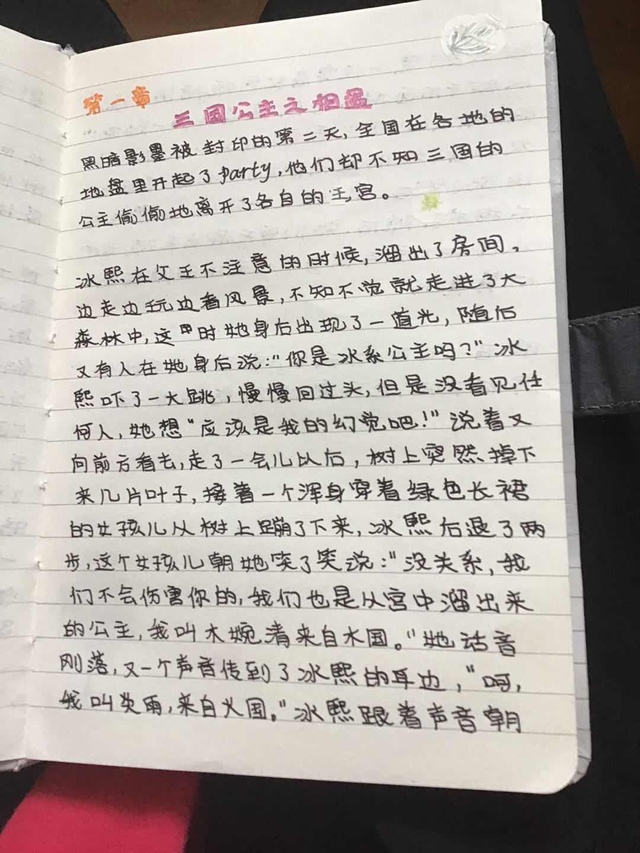 第一章
三国公主之相遇
黑暗影墨被封印的第二天,全国在各地的
地盘里开起了party,他们却不知三国的
公主偷偷地离开了各自的王宫。
冰熙在父王不注意的时候,溜出了房间,
边走边玩边看风景,不知不觉就走进了大
森林中,这时她身后出现了一道光,随后
又有人在她身后说:"你是冰系公主吗?"冰
熙吓了一大跳,慢慢回过头,但是没看见任
何人,她想"应该是我的幻觉吧!"说着又
向前方看去,走了一会儿以后,树上突然掉下
来几片叶子,接着一个浑身穿着绿色长裙
的女孩儿从树上蹦了下来,冰熙后退了两
步,这个女孩儿朝她笑了笑说:"没关系,我
们不会伤害你的,我们也是从宫中溜出来
的公主,我叫木婉清来自木国。"她话音
刚落,又一个声音传到了冰熙的耳边,"呵,
我叫炎雨,来自火国。"冰熙跟着声音朝